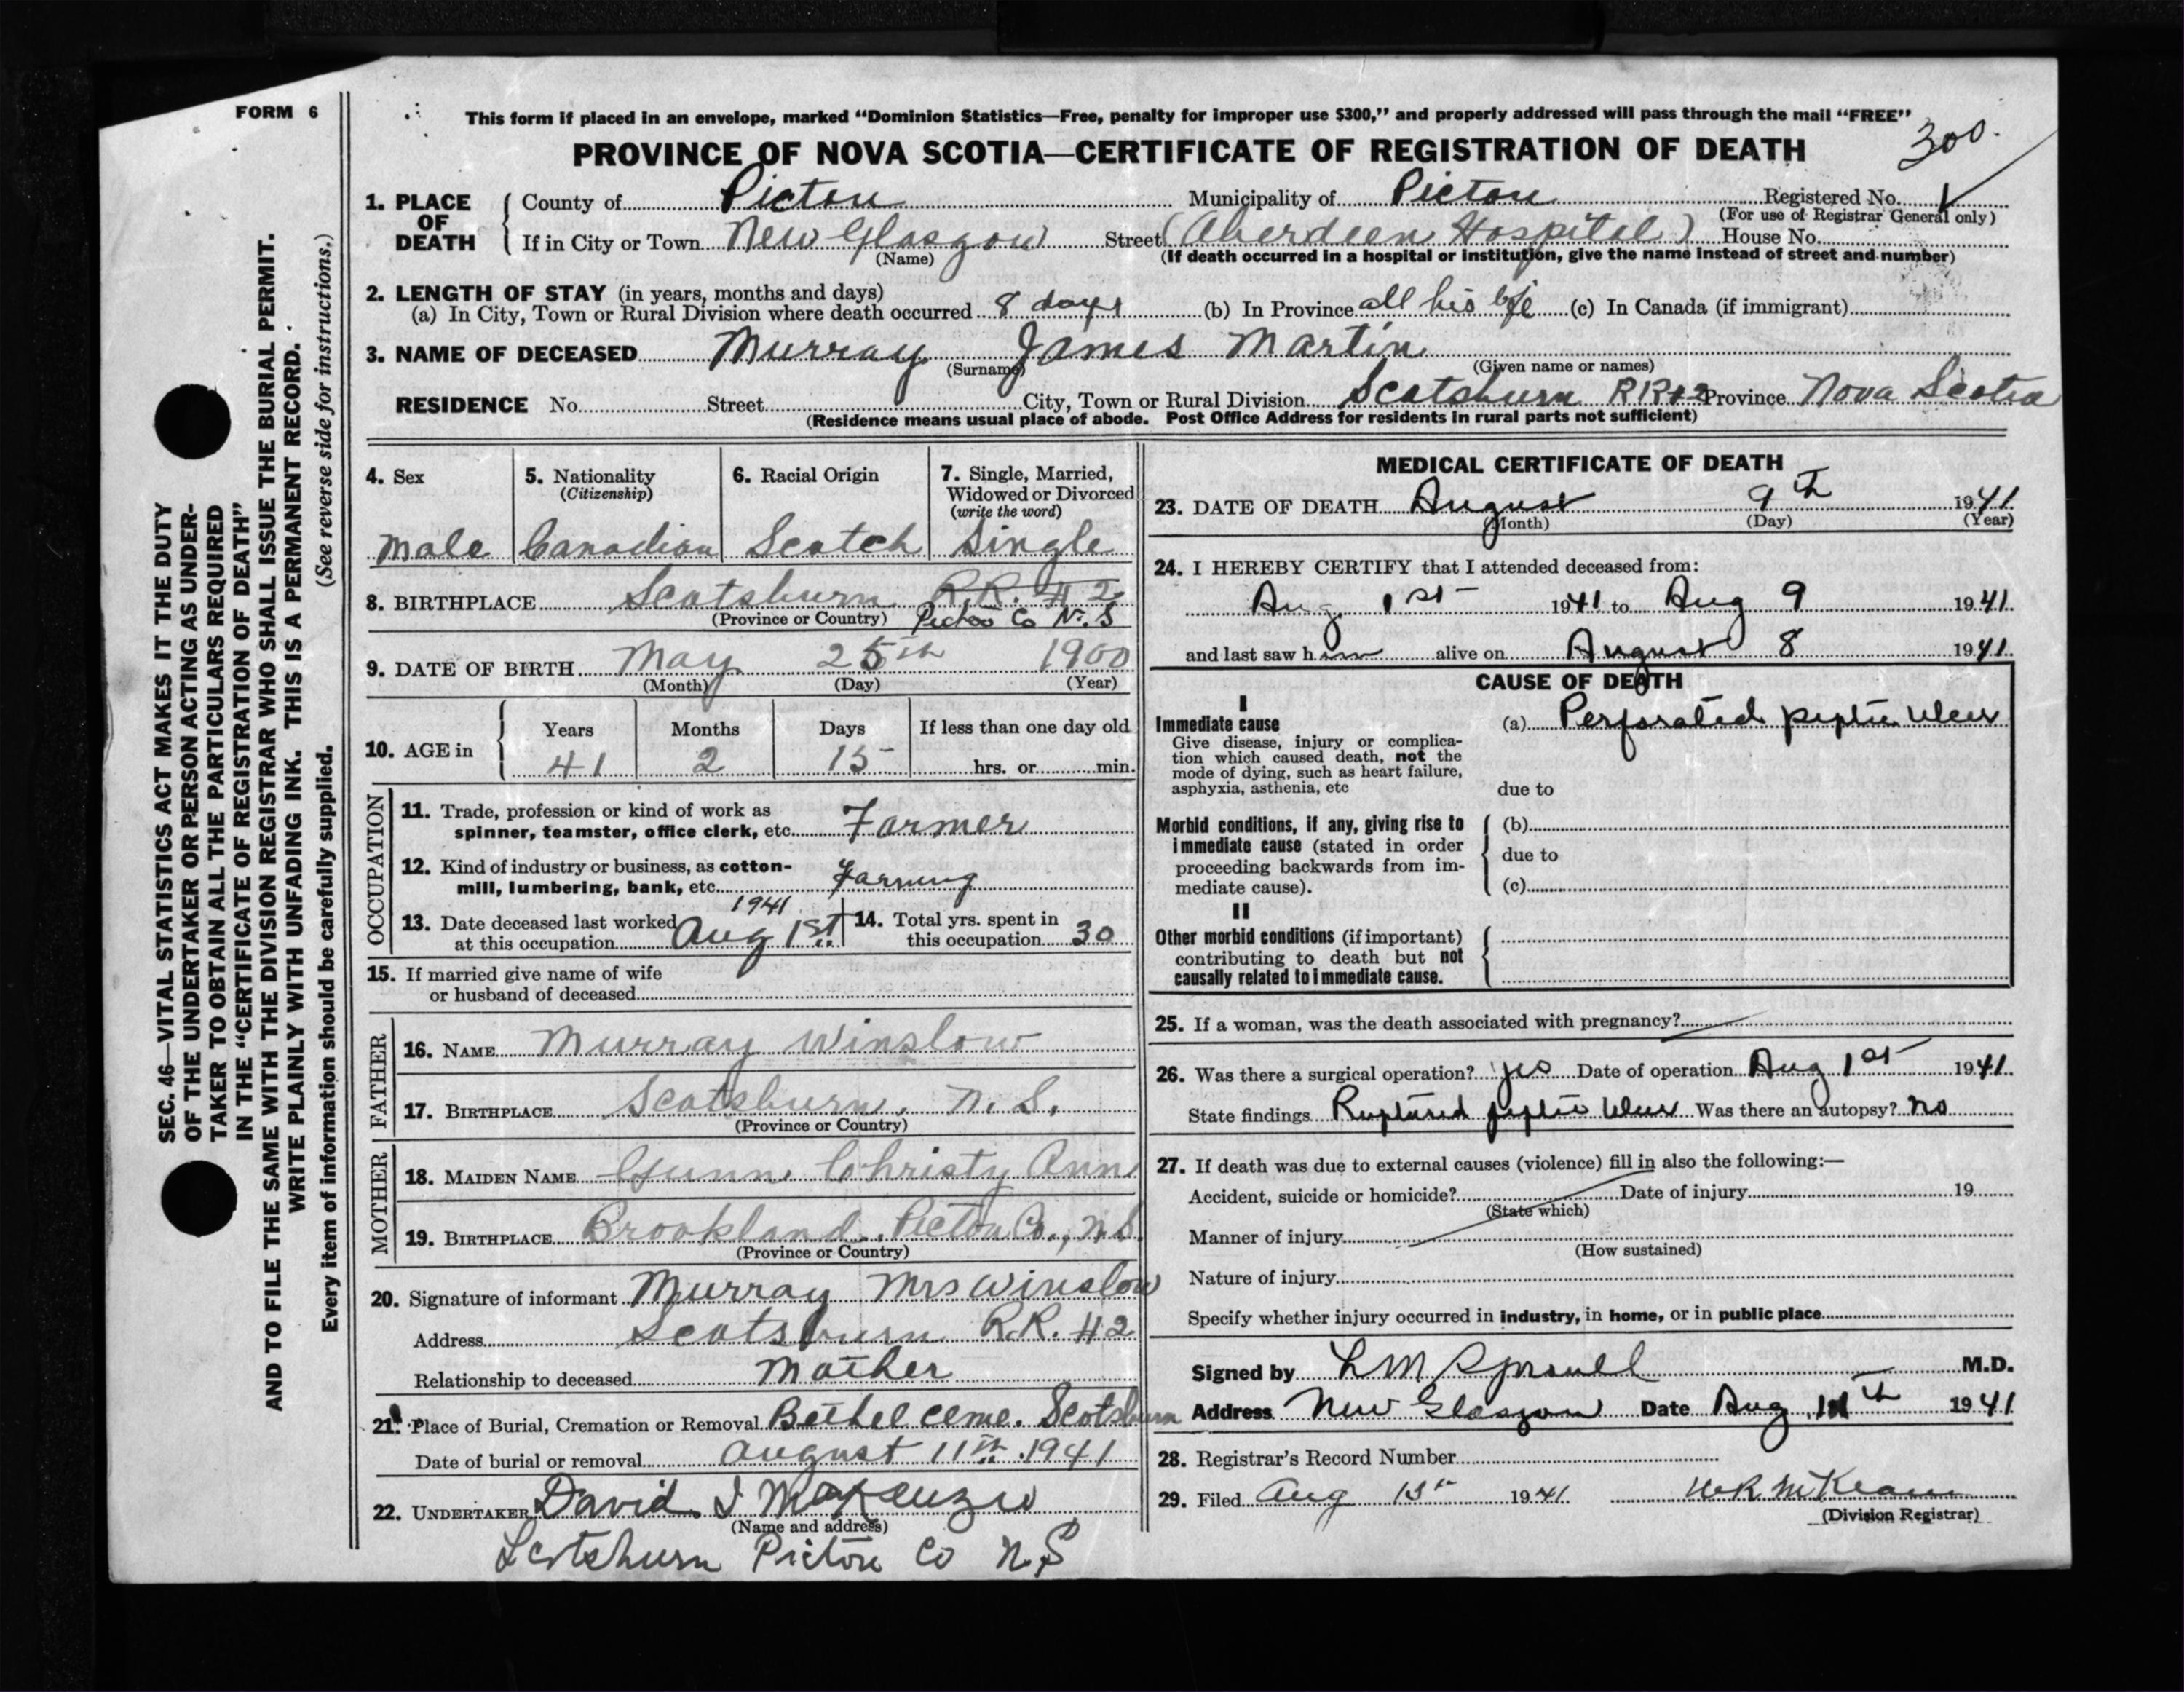 FORM 6
SEC. 46—VITAL STATISTICS ACT MAKES IT THE DUTY
OF THE UNDERTAKER OR PERSON ACTING AS UNDER-
TAKER TO OBTAIN ALL THE PARTICULARS REQUIRED
IN THE "CERTIFICATE OF REGISTRATION OF DEATH"
AND TO FILE THE SAME WITH THE DIVISION REGISTRAR WHO SHALL ISSUE THE BURIAL PERMIT.
WRITE PLAINLY WITH UNFADING INK. THIS IS A PERMANENT RECORD.
Every item of information should be carefully supplied. (See reverse side for instructions.)
This form if placed in an envelope, marked "Dominion Statistics—Free, penalty for improper use $300," and properly addressed will pass through the mail "FREE"
PROVINCE OF NOVA SCOTIA—CERTIFICATE OF REGISTRATION OF DEATH 300.
1. PLACE OF DEATH
County of Pictou Municipality of Pictou Registered No.
(For use of Registrar General only)
If in City or Town New Glasgow Street (Aberdeen Hospital) House No.
(Name) (If death occurred in a hospital or institution, give the name instead of street and number)
2. LENGTH OF STAY (in years, months and days)
(a) In City, Town or Rural Division where death occurred 8 days (b) In Province all his life (c) In Canada (if immigrant)
3. NAME OF DECEASED Murray James Martin
(Surname) (Given name or names)
RESIDENCE No. Street City, Town or Rural Division Scotsburn RR#2 Province Nova Scotia
(Residence means usual place of abode. Post Office Address for residents in rural parts not sufficient)
4. Sex
male
5. Nationality
(Citizenship)
Canadian
6. Racial Origin
Scotch
7. Single, Married,
Widowed or Divorced
(write the word)
Single
8. BIRTHPLACE Scotsburn R.R. #2
(Province or Country) Pictou Co N.S
9. DATE OF BIRTH May 25th 1900
(Month) (Day) (Year)
10. AGE in
Years Months Days If less than one day old
41 2 15 hrs. or min.
OCCUPATION
11. Trade, profession or kind of work as
spinner, teamster, office clerk, etc. Farmer
12. Kind of industry or business, as cotton-
mill, lumbering, bank, etc. Farming
13. Date deceased last worked 1941
at this occupation Aug 1st
14. Total yrs. spent in
this occupation 30
15. If married give name of wife
or husband of deceased
FATHER
16. NAME Murray Winslow
17. BIRTHPLACE Scotsburn, N.S.
(Province or Country)
MOTHER
18. MAIDEN NAME Gunn Christy Ann
19. BIRTHPLACE Brookland, Pictou Co., N.S.
(Province or Country)
20. Signature of informant Murray Mrs Winslow
Address Scotsburn R.R. #2
Relationship to deceased Mother
21. Place of Burial, Cremation or Removal Bethel Ceme. Scotsburn
Date of burial or removal August 11th 1941
22. UNDERTAKER David I McKenzie
(Name and address)
Scotsburn Pictou Co N.S
MEDICAL CERTIFICATE OF DEATH
23. DATE OF DEATH August 9th 1941
(Month) (Day) (Year)
24. I HEREBY CERTIFY that I attended deceased from:
Aug 1st 1941 to Aug 9 1941
and last saw him alive on August 8 1941.
CAUSE OF DEATH
I
Immediate cause (a) Perforated peptic ulcer
Give disease, injury or complica-
tion which caused death, not the
mode of dying, such as heart failure,
asphyxia, asthenia, etc due to
Morbid conditions, if any, giving rise to (b)
immediate cause (stated in order
proceeding backwards from im- due to
mediate cause). (c)
II
Other morbid conditions (if important)
contributing to death but not
causally related to immediate cause.
25. If a woman, was the death associated with pregnancy?
26. Was there a surgical operation? Yes Date of operation Aug 1st 1941.
State findings Ruptured peptic ulcer Was there an autopsy? No
27. If death was due to external causes (violence) fill in also the following:—
Accident, suicide or homicide? Date of injury 19
(State which)
Manner of injury
(How sustained)
Nature of injury
Specify whether injury occurred in industry, in home, or in public place
Signed by L M Sproull M.D.
Address New Glasgow Date Aug 1941
28. Registrar's Record Number
29. Filed Aug 13th 1941. McKean
(Division Registrar)